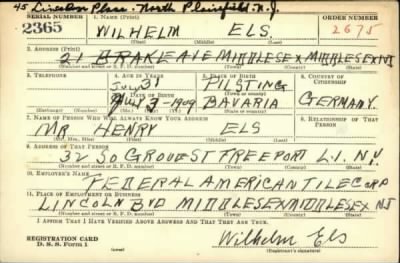 45 Lincoln Place - North Plainfield - N.J.
SERIAL NUMBER 1. NAME (Print) ORDER NUMBER
2365 WILHELM ELS. 2675
(First) (Middle) (Last)
2. ADDRESS (Print)
21 DRAKE AVE MIDDLESEX MIDDLESEX NJ
(Number and street or R. F. D. number) (Town) (County) (State)
3. TELEPHONE 4. AGE IN YEARS 5. PLACE OF BIRTH 6. COUNTRY OF CITIZENSHIP
31 PILSTING
DATE OF BIRTH (Town or county)
July 3 - 1909 BAVARIA GERMANY
(Exchange) (Number) (Mo.) (Day) (Yr.) (State or country)
7. NAME OF PERSON WHO WILL ALWAYS KNOW YOUR ADDRESS 8. RELATIONSHIP OF THAT PERSON
MR HENRY ELS
(Mr., Mrs., Miss) (First) (Middle) (Last)
9. ADDRESS OF THAT PERSON
32 SO GROVE ST FREEPORT L.I. N.Y.
(Number and street or R. F. D. number) (Town) (County) (State)
10. EMPLOYER'S NAME
FEDERAL AMERICAN TILE CORP
11. PLACE OF EMPLOYMENT OR BUSINESS
LINCOLN BVD MIDDLESEX MIDDLESEX NJ
(Number and street or R. F. D. number) (Town) (County) (State)
I AFFIRM THAT I HAVE VERIFIED ABOVE ANSWERS AND THAT THEY ARE TRUE.
REGISTRATION CARD
D. S. S. Form 1 Wilhelm Els
(Registrant's signature)